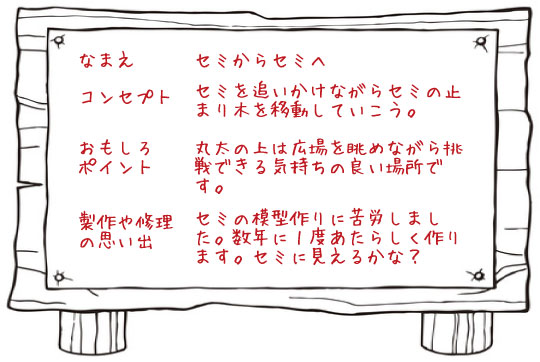 なまえ セミからセミへ
コンセプト セミを追いかけながらセミの止
まり木を移動していこう。
おもしろ 丸太の上は広場を眺めながら挑
ポイント 戦できる気持ちの良い場所で
す。
製作や修理 セミの模型作りに苦労しまし
の思い出 た。数年に１度あたらしく作り
ます。セミに見えるかな？